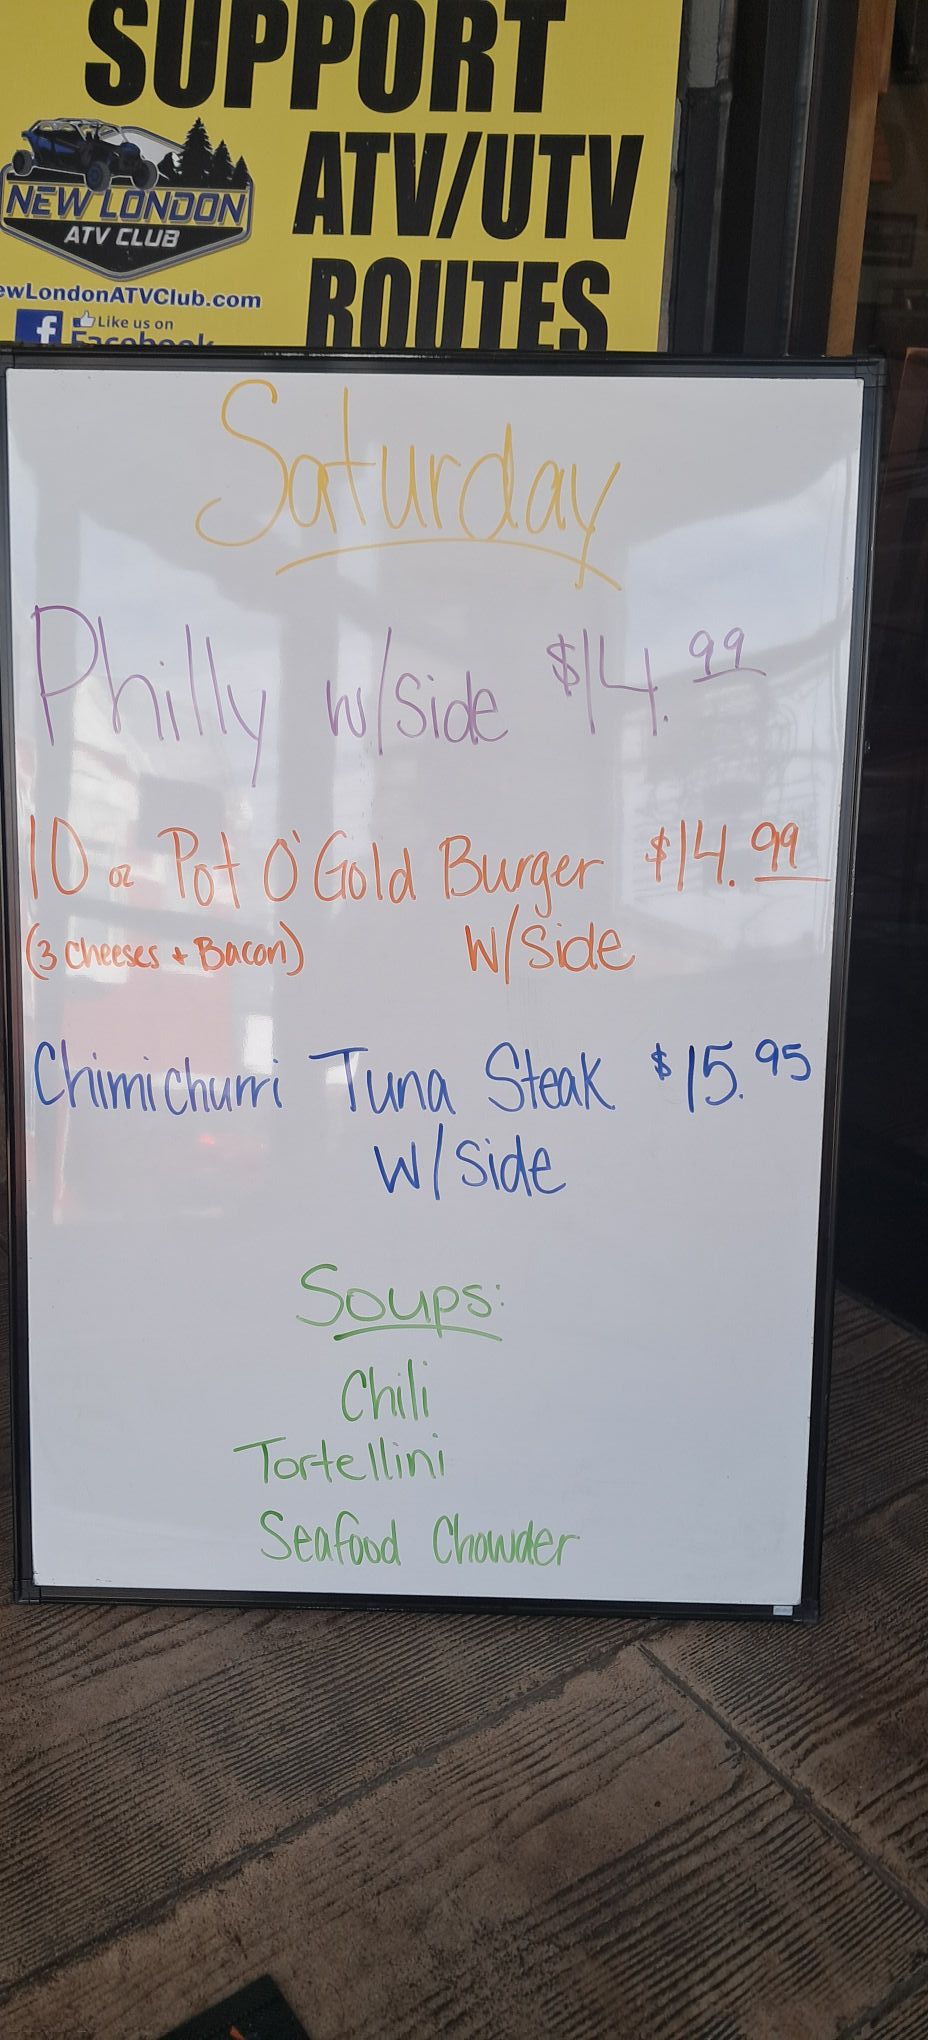 SUPPORT
ATV/UTV
ROUTES
NEW LONDON
ATV CLUB
ewLondonATVClub.com
Like us on
Facebook
Saturday
Philly w/side $14.99
10 oz Pot O'Gold Burger $14.99
(3 Cheeses + Bacon) W/Side
Chimichurri Tuna Steak $15.95
W/Side
Soups:
Chili
Tortellini
Seafood Chowder